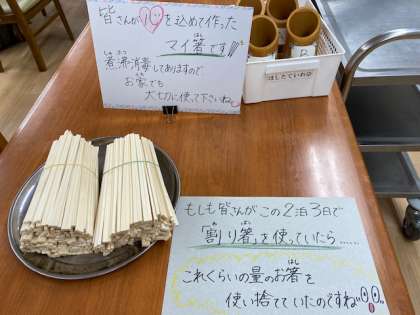 皆さんが♡を込めて作った
マイ箸です!!
煮沸消毒してありますので、
お家でも
大切に使って下さいね
はしたてい
もしも皆さんがこの2泊3日で
「割り箸」を使っていたら……
これくらいの量のお箸を
使い捨てていたのですね